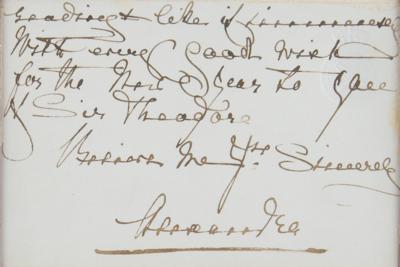 reading & like it immensely
With every good wish
for the New Year to you
& Sir Theodore
Believe me Yrs Sincerely
Alexandra